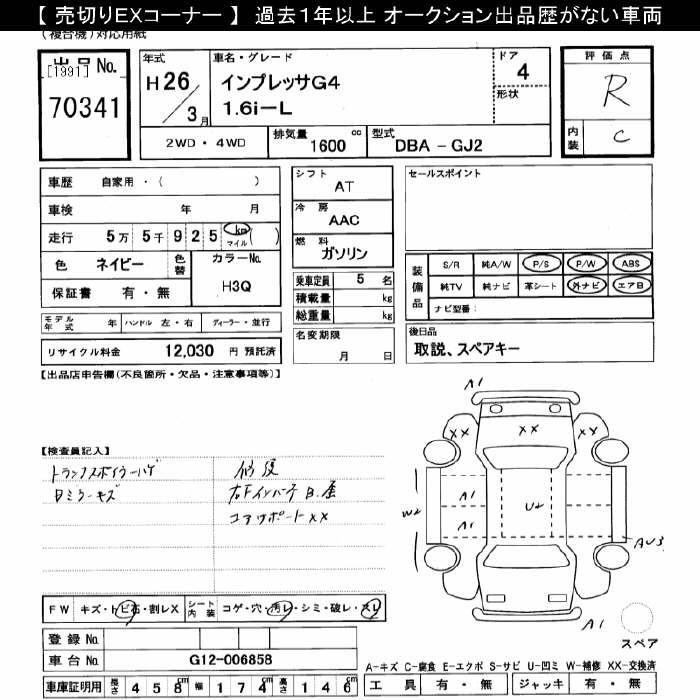 【 売切りEXコーナー 】 過去1年以上 オークション出品歴がない車両
(複合機)対応用紙
出品 No.
[1991]
70341
年式
H 26 / 3月
車名・グレード
インプレッサG4
1.6i-L
ドア
4
形状
評価点
R
内装
C
2WD・4WD
排気量
1600 cc
型式
DBA - GJ2
車歴 自家用・( )
車検 年 月
走行 5万 5千 9 2 5 km マイル ( )
色 ネイビー 色替
カラーNo.
H3Q
保証書 有・無
モデル年式 年 ハンドル 左・右 ディーラー・並行
リサイクル料金 12,030 円 預託済
シフト
AT
冷房
AAC
燃料
ガソリン
乗車定員 5 名
積載量 kg
総重量 kg
名変期限
月 日
セールスポイント
装備品
S/R 純A/W P/S P/W ABS
純TV 純ナビ 革シート 外ナビ エアB
ナビ型番:
後日品
取説、スペアキー
【出品店申告欄(不良箇所・欠品・注意事項等)】
【検査員記入】
トランクスポイラーハゲ
Dミラーキズ
修復
右Fインパネ B.屋
コアサポートXX
A1
XX
XX
XX
W2
A1
A1
U2
AU3
A1
スペア
FW キズ・トビ石・割レX
シート内装 コゲ・穴・汚レ・シミ・破レ・スレ
登録 No.
車台 No. G12-006858
車庫証明用 長さ 4 5 8 cm 幅 1 7 4 cm 高さ 1 4 6 cm
A-キズ C-腐食 E-エクボ S-サビ U-凹ミ W-補修 XX-交換済
工具 有・無 ジャッキ 有・無